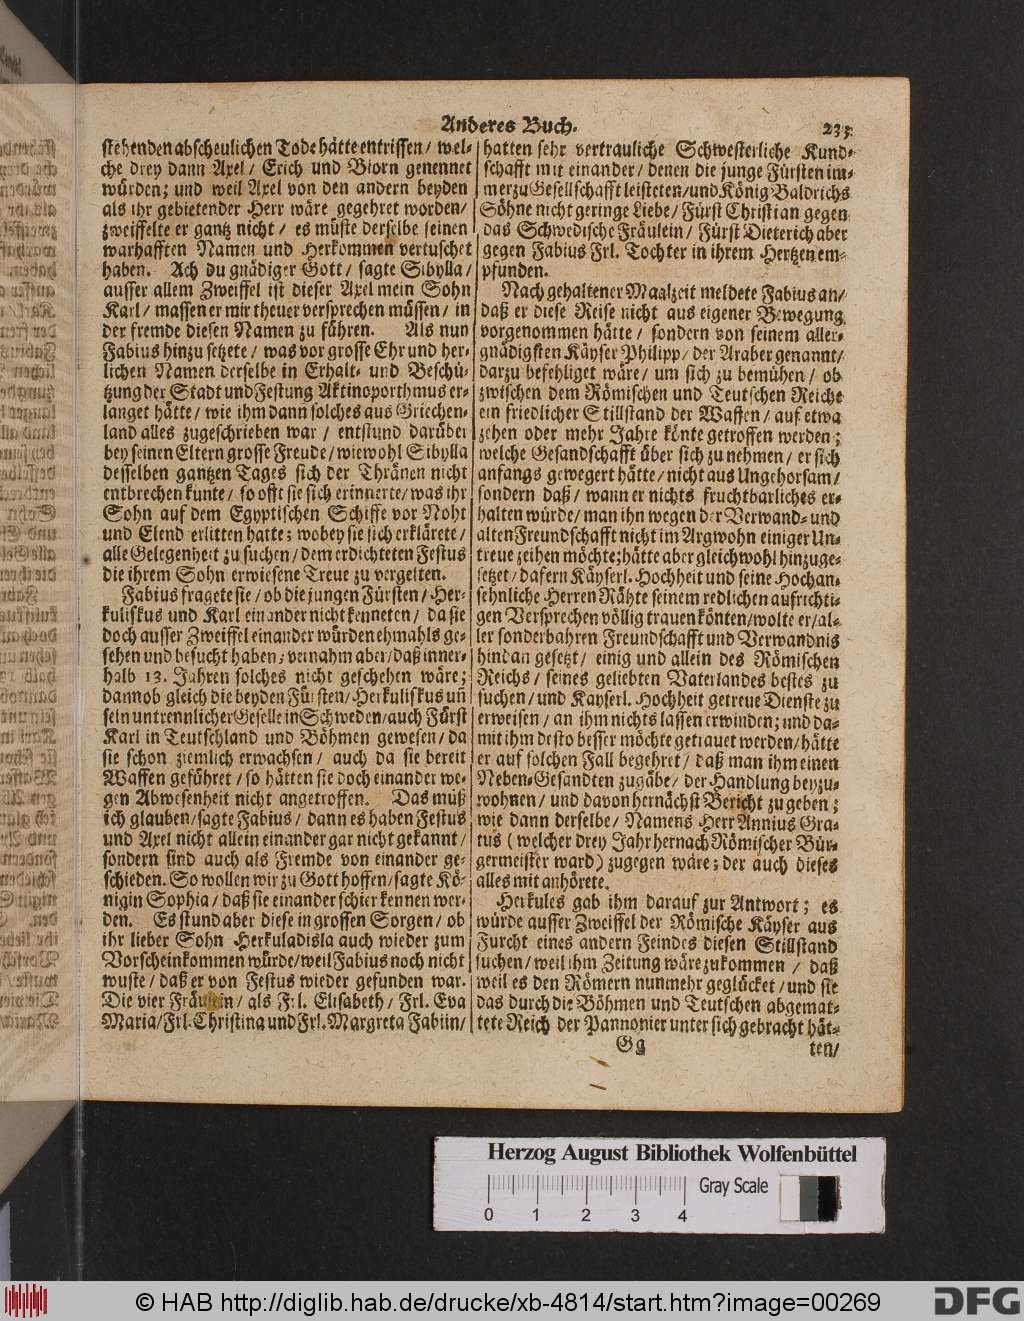 Anderes Buch. 233.
stehenden abscheulichen Tode hätte entrissen/ wel-
che drey dann Axel/ Erich und Biorn genennet
würden; und weil Axel von den andern beyden
als ihr gebietender Herr wäre geehret worden/
zweiffelte er gantz nicht/ es müste derselbe seinen
warhafften Namen und Herkommen vertuschet
haben. Ach du gnädiger Gott/ sagte Sibylla/
ausser allem Zweiffel ist dieser Axel mein Sohn
Karl/ massen er mir theuer versprechen müssen/ in
der fremde diesen Namen zu führen. Als nun
Fabius hinzu setzete/ was vor grosse Ehr und her-
lichen Namen derselbe in Erhalt- und Beschü-
tzung der Stadt und Festung Aktinoporthmus er-
langet hätte/ wie ihm dann solches aus Griechen-
land alles zugeschrieben war/ entstund darüber
bey seinen Eltern grosse Freude/ wiewohl Sibylla
desselben gantzen Tages sich der Thränen nicht
entbrechen kunte/ so offt sie sich erinnerte/ was ihr
Sohn auf dem Egyptischen Schiffe vor Noht
und Elend erlitten hatte; wobey sie sich erklärete/
alle Gelegenheit zu suchen/ dem erdichteten Festus
die ihrem Sohn erwiesene Treue zu vergelten.
Fabius fragete sie/ ob die jungen Fürsten/ Her-
kuliskus und Karl einander nicht kenneten/ da sie
doch ausser Zweiffel einander würden ehmahls ge-
sehen und besucht haben; vernahm aber/ daß inner-
halb 13. Jahren solches nicht geschehen wäre;
dann ob gleich die beyden Fürsten/ Herkuliskus uñ
sein untrennlicher Geselle in Schweden/ auch Fürst
Karl in Teutschland und Böhmen gewesen/ da
sie schon ziemlich erwachsen/ auch da sie bereit
Waffen geführet/ so hätten sie doch einander we-
gen Abwesenheit nicht angetroffen. Das muß
ich glauben/ sagte Fabius/ dann es haben Festus
und Axel nicht allein einander gar nicht gekannt/
sondern sind auch als Fremde von einander ge-
schieden. So wollen wir zu Gott hoffen/ sagte Kö-
nigin Sophia/ daß sie einander schier kennen wer-
den. Es stund aber diese in grossen Sorgen/ ob
ihr lieber Sohn Herkuladisla auch wieder zum
Vorschein kommen würde/ weil Fabius noch nicht
wuste/ daß er von Festus wieder gefunden war.
Die vier Fräulein/ als Frl. Elisabeth/ Frl. Eva
Maria/ Frl. Christina und Frl. Margreta Fabiin/
hatten sehr vertrauliche Schwesterliche Kund-
schafft mit einander/ denen die junge Fürsten im-
merzu Gesellschafft leisteten/ und König Baldrichs
Söhne nicht geringe Liebe/ Fürst Christian gegen
das Schwedische Fräulein/ Fürst Dieterich aber
gegen Fabius Frl. Tochter in ihrem Hertzen em-
pfunden.
Nach gehaltener Maalzeit meldete Fabius an/
daß er diese Reise nicht aus eigener Bewegung
vorgenommen hätte/ sondern von seinem aller-
gnädigsten Käyser Philipp/ der Araber genannt/
darzu befehliget wäre/ um sich zu bemühen/ ob
zwischen dem Römischen und Teutschen Reiche
ein friedlicher Stillstand der Waffen/ auf etwa
zehen oder mehr Jahre könte getroffen werden;
welche Gesandschafft über sich zu nehmen/ er sich
anfangs gewegert hätte/ nicht aus Ungehorsam/
sondern daß/ wann er nichts fruchtbarliches er-
halten würde/ man ihn wegen der Verwand- und
alten Freundschafft nicht im Argwohn einiger Un-
treue zeihen möchte; hätte aber gleichwohl hinzuge-
setzet/ dafern Käyserl. Hochheit und seine Hochan-
sehnliche Herren Rähte seinem redlichen aufrichti-
gen Versprechen völlig trauen könten/ wolte er/ al-
ler sonderbahren Freundschafft und Verwandnis
hindan gesetzt/ einig und allein des Römischen
Reichs/ seines geliebten Vaterlandes bestes zu
suchen/ und Kayserl. Hochheit getreue Dienste zu
erweisen/ an ihm nichts lassen erwinden; und da-
mit ihm desto besser möchte getrauet werden/ hätte
er auf solchen Fall begehret/ daß man ihm einen
Neben-Gesandten zugäbe/ der Handlung beyzu-
wohnen/ und davon hernächst Bericht zu geben;
wie dann derselbe/ Namens Herr Annius Gra-
tus (welcher drey Jahr hernach Römischer Bür-
germeister ward) zugegen wäre; der auch dieses
alles mit anhörete.
Herkules gab ihm darauf zur Antwort; es
würde ausser Zweiffel der Römische Käyser aus
Furcht eines andern Feindes diesen Stillstand
suchen/ weil ihm Zeitung wäre zukommen/ daß
weil es den Römern nunmehr geglücket/ und sie
das durch die Böhmen und Teutschen abgemat-
tete Reich der Pannonier unter sich gebracht hät-
Gg ten/
Herzog August Bibliothek Wolfenbüttel
Gray Scale
0 1 2 3 4
© HAB http://diglib.hab.de/drucke/xb-4814/start.htm?image=00269
DFG